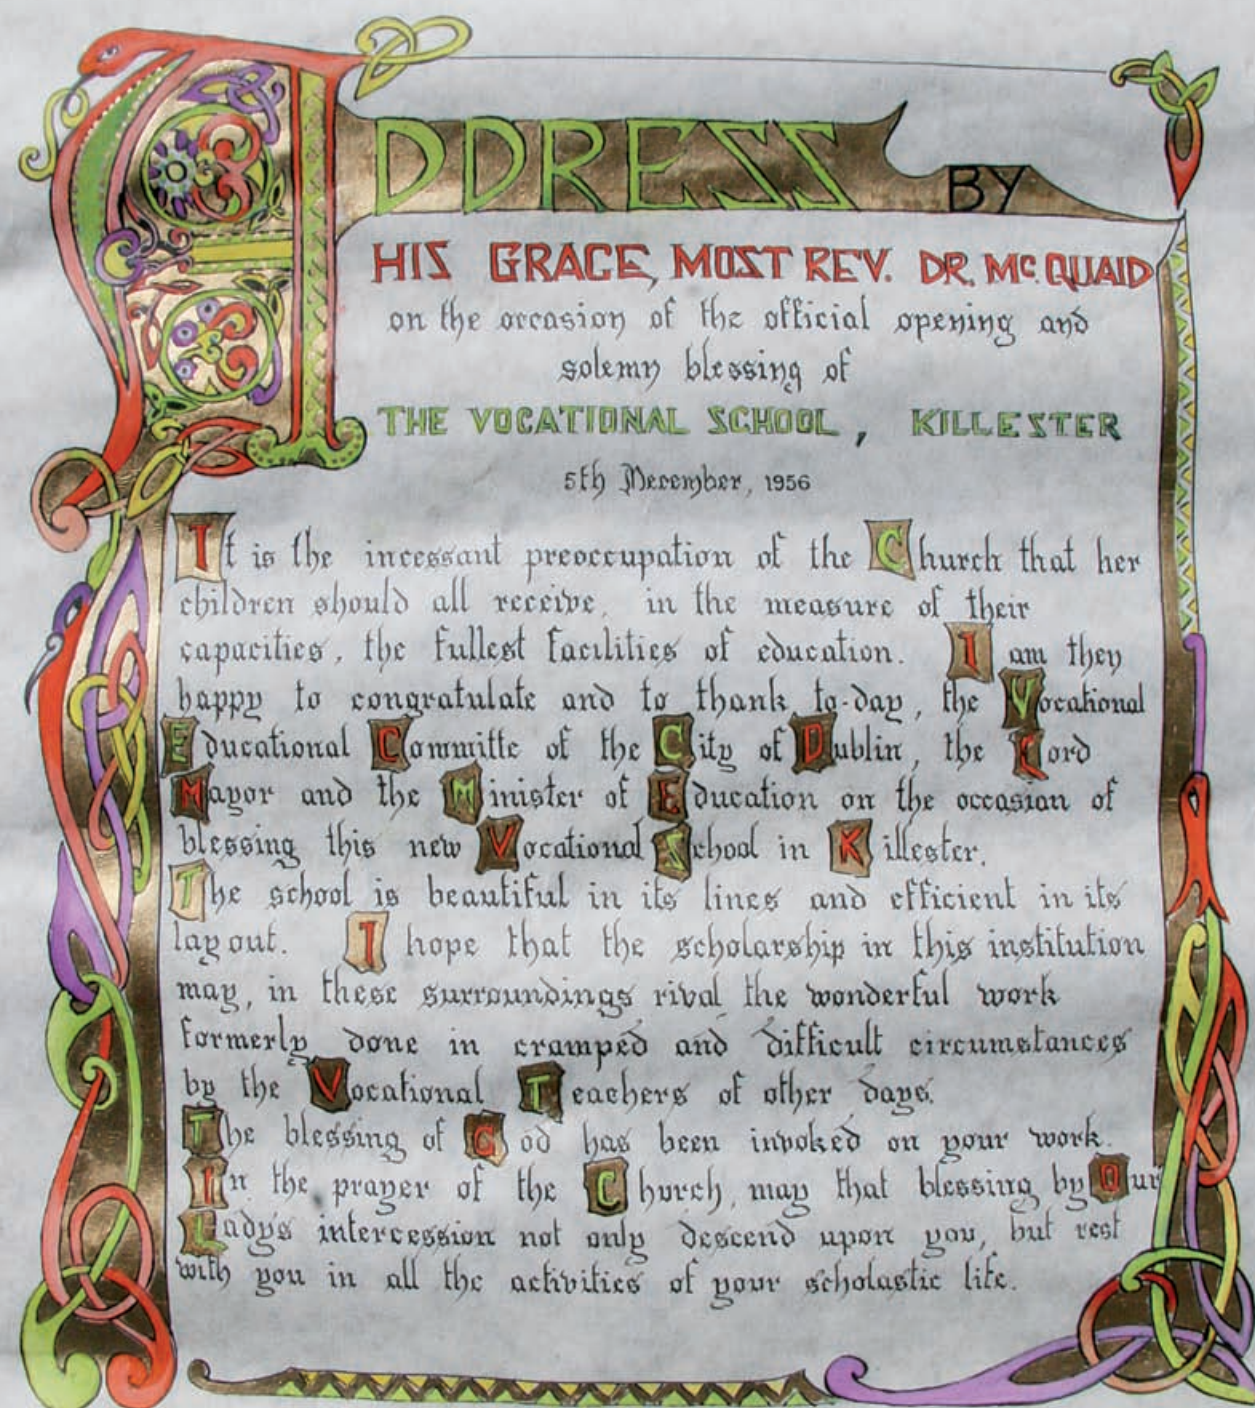 ADDRESS BY
HIS GRACE, MOST REV. DR. Mc. QUAID
on the occasion of the official opening and
solemn blessing of
THE VOCATIONAL SCHOOL, KILLESTER
5th December, 1956
It is the incessant preoccupation of the Church that her
children should all receive, in the measure of their
capacities, the fullest facilities of education. I am then
happy to congratulate and to thank to-day, the Vocational
Educational Committe of the City of Dublin, the Lord
Mayor and the Minister of Education on the occasian of
blessing this new Vocational School in Killester.
The school is beautiful in its lines and efficient in its
lay out. I hope that the scholarship in this institution
may, in these surroundings rival the wonderful work
formerly done in cramped and difficult circumstances
by the Vocational Teachers of other days.
The blessing of God has been invoked on your work.
In the prayer of the Church, may that blessing by Our
Lady's intercession not only descend upon you, but rest
with you in all the activities of your scholastic life.